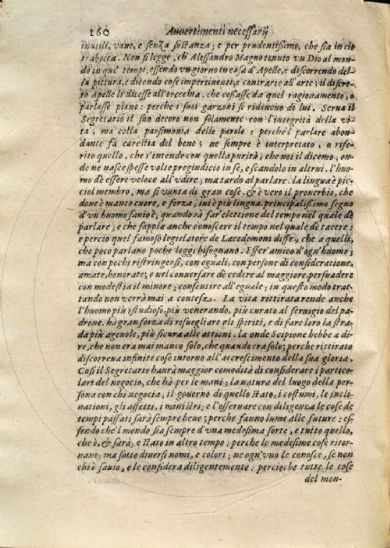 160 Auuertimenti necessarij
inutili, vane, e senza sostanza; e per prudentissimo, che sia in ciò
trabocca. Non si legge, ch'Alessandro Magno tenuto vn Dio al mon-
do in que' tempi, essendo vn giorno in casa d'Apelle, e discorrendo del-
la pittura, e dicendo cose impertinenti, e contrarie all'arte; il discre-
to Apelle li disse all'orecchia, che cessasse da quel ragionamento, o
parlasse piano: perche i suoi garzoni si rideuono di lui. Serua il
Segretario il suo decoro non solamente con l'integrità della vi-
ta; ma colla parsimonia delle parole: perche'l parlare abon-
dante fà carestia del bene; ne sempre è interpretato, o rife-
rito quello, che s'intende con quella purità, che noi il dicemo; on-
de ne nasce spesse volte pregiudicio in se, e scandolo in altrui. l'huo-
mo dè essere veloce all'vdire; ma tardo al parlare. La lingua è pic-
ciol membro, ma si vanta di gran cose, & è vero il prouerbio, che
doue è manco cuore, e forza, iui è più lingua. principalissimo segno
d'vn huomo sauio è, quando sà far'elezione del tempo nel quale dè
parlare; e che sappia anche conoscere il tempo nel quale dè tacere:
e perciò quel famoso legislatore de Lacedemoni disse, che a quelli,
che poco parlano poche leggi bisognano. Esser'amico d'ogn'huomo;
ma con pochi restringersi, con eguali, con persone di considerazione,
amate, honorate; e nel conuersare dè cedere al maggiore, persuadere
con modestia il minore; consentire all'eguale; in questo modo trat-
tando non verrà mai a contesa. La vita rittirata rende anche
l'huomo più studioso, più venerando, più curato al seruigio del pa-
drone. hà gran forza di risuegliare gli spiriti, e di fare loro la stra-
da più ageuole, più sicura alle attioni. là onde Scipione hebbe a di-
re, che non era mai manco solo, che quando era solo; perche rittirato
discorreua infinite cose intorno all'accrescimento della sua gloria.
Così il Segretario haurà maggior comodità di considerare i partico-
lari del negocio, che hà per le mani; la natura del luogo della per-
sona con chi negocia; il gouerno di quello stato; i costumi, le incli-
nationi, gli affetti, i ministri; e l'osseruare con diligenza le cose de
tempi passati, sarà sempre bene; perche fanno lume alle future: es-
sendo che'l mondo sia sempre d'vna medesima sorte, e tutto quello,
che è, & sarà; è stato in altro tempo; perche le medesime cose ritor-
nano; ma sotto diuersi nomi, e colori; ne ogn'vno le conosce, se non
chi è sauio, e le considera diligentemente: percioche tutte le cose
del mon-